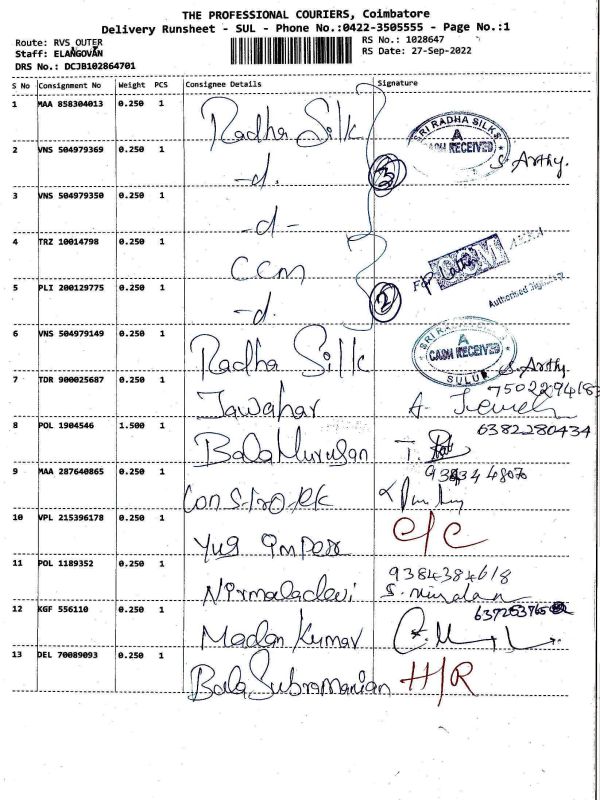 THE PROFESSIONAL COURIERS, Coimbatore
Delivery Runsheet - SUL - Phone No.:0422-3505555 - Page No.:1
Route: RVS OUTER
RS No.: 1028647
Staff: ELANGOVAN
RS Date: 27-Sep-2022
DRS No.: DCJB102864701
S No Consignment No Weight PCS Consignee Details Signature
1 MAA 858304013 0.250 1 Radha Silk
SRI RADHA SILKS
A
CASH RECEIVED
S. Arthy.
2 VNS 504979369 0.250 1 -d.
3
3 VNS 504979350 0.250 1 -d-
4 TRZ 10014798 0.250 1 CCM
CCM
5 PLI 200129775 0.250 1 -d.
2
Authorised
6 VNS 504979149 0.250 1 Radha Silk
A
CASH RECEIVED
SULUR
S. Arthy.
7 TDR 900025687 0.250 1 Jawahar
8 POL 1904546 1.500 1 BalaMurugan
6382280434
9 MAA 287640865 0.250 1
10 VPL 215396178 0.250 1 C/C
11 POL 1189352 0.250 1 Nirmaladevi
9384384618
12 KGF 556110 0.250 1 Madan Kumar
13 DEL 70089093 0.250 1 Bala Subramanian H/R